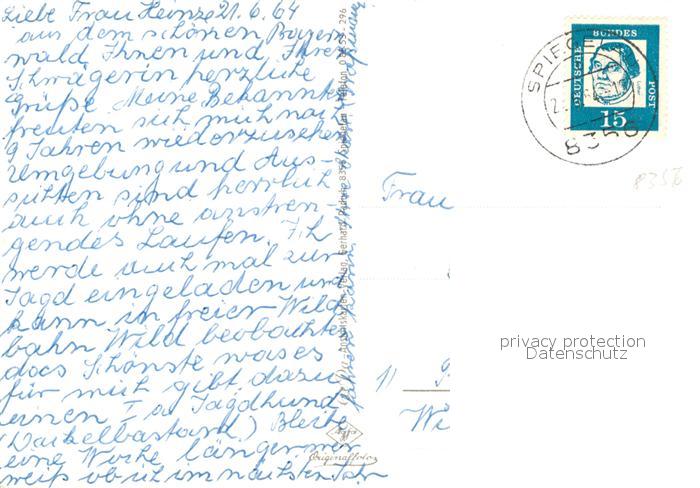 Liebe Frau Heinze 21.6.64
aus dem schönen Bayern
wald Ihnen und Ihrer
Schwägerin herzliche
Grüße. Meine Bekannten
freuten sich mich nach
9 Jahren wiederzusehen
Umgebung und Aus-
sichten sind herrlich
auch ohne anstren
gendes Laufen. Ich
werde auch mal zur
Jagd eingeladen und
kann in freier Wild
bahn Wild beobachten
das Schönste was es
für mich gibt, dazu
einen I a Jagdhund
(Dackelbastard.) Bleibe
eine Woche länger, wer
weiß ob ich im nächsten Jahr
fahren kann.
Verlag Gerhard
8356 Spiegelau
296
Agfa
Originalfoto
Frau
11
Wi
SPIEGE
8356
DEUTSCHE
BUNDES
POST
15
8356
privacy protection
Datenschutz